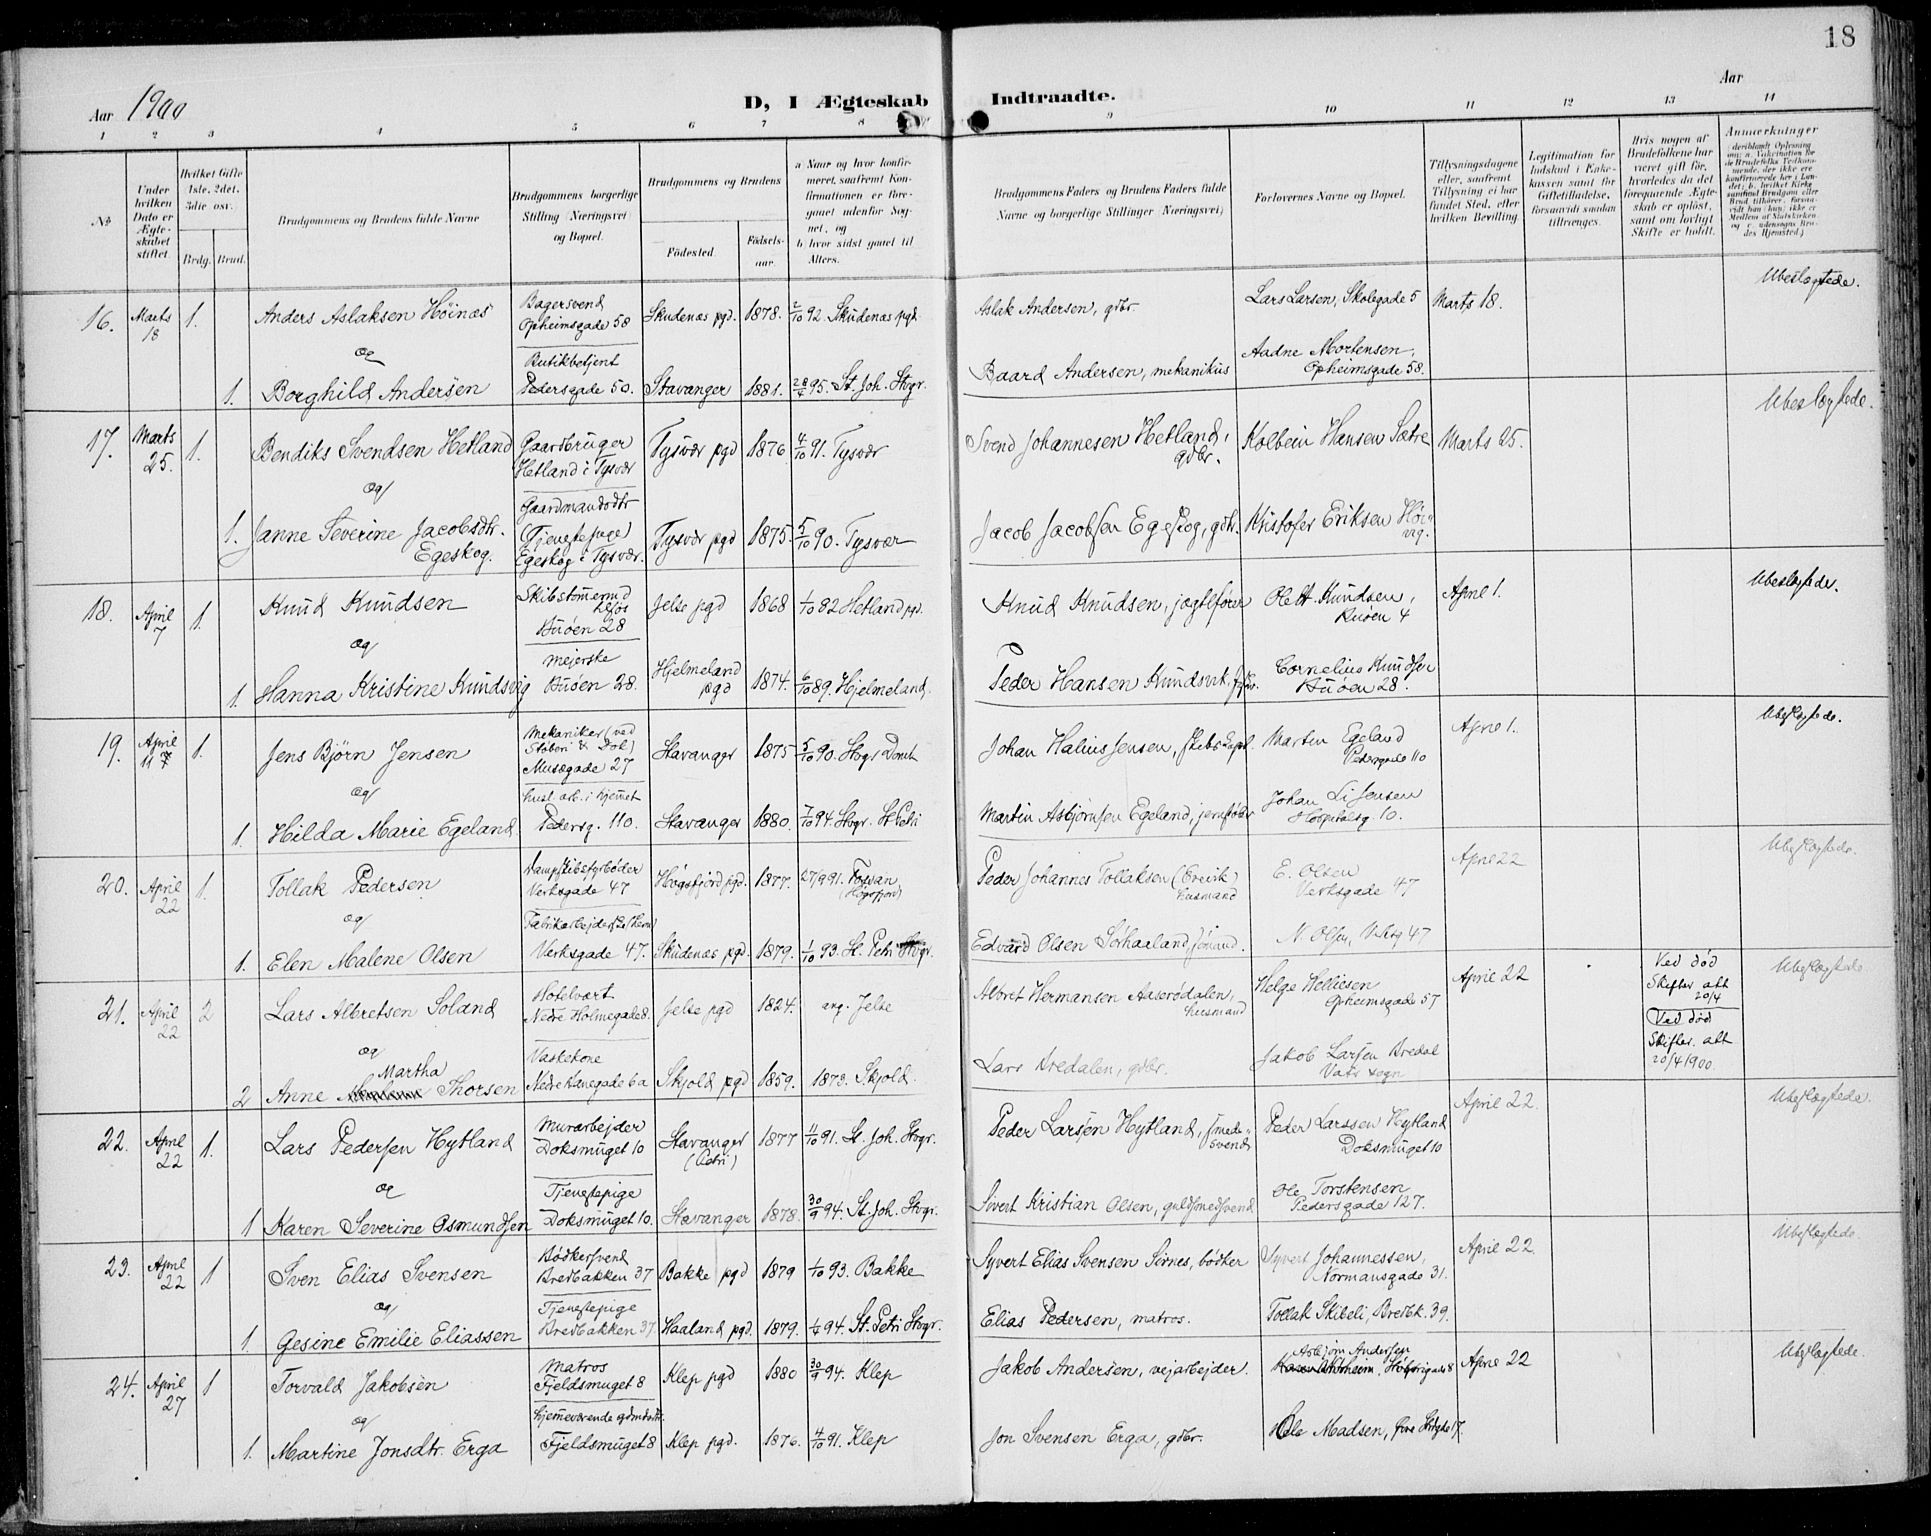 18
Aar 1900
D, I Ægteskab Indtraadte.
Aar
1 2 3 4 5 6 7 8 9 10 11 12 13 14
No
Under hvilken Dato er Ægteskabet stiftet.
Hvilket Gifte 1ste, 2det, 3die osv.
Brdg. Brud.
Brudgommens og Brudens fulde Navne
Brudgommens borgerlige Stilling (Næringsvei) og Bopæl.
Brudgommens og Brudens
Födested.
Födselsaar.
a. Naar og hvor konfirmeret, saafremt Konfirmationen er foregaaet udenfor Sognet, og
b. hvor sidst gaaet til Alters.
Brudgommens Faders og Brudens Faders fulde Navne og borgerlige Stillinger (Næringsvei)
Forlovernes Navne og Bopæl.
Tillysningsdagene eller, saafremt Tillysning ei har fundet Sted, efter hvilken Bevilling.
Legitimation for Indskud i Enkekassen samt for Giftetilladelse, forsaavidt saadan tiltrænges.
Hvis nogen af Brudefolkene har været gift før, hvorledes da det foregaaende Ægteskab er opløst, samt om lovligt Skifte er holdt.
Anmerkninger
16. Marts 18 1. Anders Aslaksen Höinæs Bagersvend Opheimsgade 58 Skudenæs pgd. 1878. 2/10 92. Skudenæs pgd. Aslak Andersen, gdbr. Lars Larsen, Skolegade 5 Marts 18. Ubeslægtede.
og
1. Borghild Andersen Butikbetjent Pedersgade 50. Stavanger 1881. 28/4 95. St. Joh. Stvgr. Baard Andersen, mekanikus Aadne Mortensen, Opheimsgade 58.
17. Marts 25. 1. Bendiks Svendsen Hetland Gaardbruger Hetland i Tysvær Tysvær pgd 1876 4/10 91. Tysvær Svend Johannesen Hetland, gdbr. Kolbein Hansen Sætre Marts 25. Ubeslægtede.
og
1. Janne Severine Jacobsdtr. Egeskog. Gaardmandsdtr (Tjenestepige) Egeskog i Tysvær. Tysvær pgd 1875. 5/10 90. Tysvær Jacob Jacobsen Egeskog, gdbr. Kristofer Eriksen
18. April 7 1. Knud Knudsen Skibstömmermand Buöen 28 Jelse pgd 1868 1/10 82 Hetland pgd. Knud Knudsen, jagtfører Ole H. Knudsen, Buöen 4 April 1. Ubeslægtede.
og
1. Hanna Kristine Knudsvig Mejerske Buöen 28. Hjelmeland pgd 1874. 6/10 89. Hjelmeland. Peder Hansen Knudsvik, Cornelius Knudsen Buöen 28.
19. April 11 1. Jens Björn Jensen Mekaniker (ved Støberi & Dok) Musægade 27 Stavanger 1875 5/10 90. Stvgr Domk Johan Halius Jensen, skibskapt. Martin Egeland Pedersgade 110 April 1. Ubeslægtede.
og
1. Hilda Marie Egeland. husl. arb. i hjemmet Pedersg. 110. Stavanger 1880. 7/10 94. Stvgr. St. Petri Martin Asbjørnsen Egeland, Johan L. Jensen Hospitalsg. 10.
20. April 22 1. Tollak Pedersen Dampskibsfyrbøder Verksgade 47 Högsfjord pgd. 1877. 27/9 91. Fossan (Högsfjord) Peder Johannes Tollaksen husmand E. Olsen Verksgade 47 April 22 Ubeslægtede.
og
1. Elen Malene Olsen Fabrikarbejderske Verksgade 47. Skudenæs pgd. 1879. 1/10 93. St. Petri Stvgr. Edvard Olsen Sørhaaland, N. Olsen, Verksg 47
21. April 22 2 Lars Albretsen Soland Hotelvært Nedre Holmegade 8. Jelse pgd 1824. ang. Jelse Albret Hermansen Aaserødalen, husmand Helge Helliesen Opheimsgade 57 April 22 Ved död Skifter. att 20/4 Ubeslægtede
og
2 Anne Martha Thorsen Vaskekone Nedre Banegade 6a Skjold pgd 1859. 1873. Skjold. Lars Dredalen, gdbr. Jakob Larsen Bredal Vats sogn Ved död Skifter. att 20/4 1900.
22. April 22 1. Lars Pedersen Hytland Murarbejder Doksmuget 10 Stavanger (Petri) 1877 11/10 91. St. Joh. Stvgr. Peder Larsen Hytland, smedesvend Peder Larssen Hytland Doksmuget 10 April 22. Ubeslægtede.
og
1 Karen Severine Osmundsen Tjenestepige Doksmuget 10. Stavanger 1878. 30/9 94. St. Joh. Stvgr. Sivert Kristian Olsen, guldsmedsvend Ole Torstensen Pedersgade 127.
23. April 22 1 Sven Elias Svensen Bödkersvend Bredbakken 37 Bakke pgd 1879 1/10 93. Bakke Syvert Elias Svensen Sirnes, bödker Syvert Johannessen, Normansgade 31. April 22. Ubeslægtede.
og
1. Gesine Emilie Eliassen Tjenestepige Bredbakken 37. Haaland pgd. 1879. 1/4 94. St. Petri Stvgr. Elias Pedersen, matros. Tollak Skibeli, Bredbk. 39.
24. April 27 1 Torvald Jakobsen Matros Fjeldsmuget 8 Klep pgd 1880 30/9 94. Klep Jakob Andersen, vejarbejder. Asbjörn Andersen April 22 Ubeslægtede.
og
1. Martine Jonsdtr. Erga hjemmeværende gdmdsdtr. Fjeldsmuget 8 Klep pgd. 1876. 4/10 91. Klep Jon Svensen Erga, gdbr. Ole Madsen,